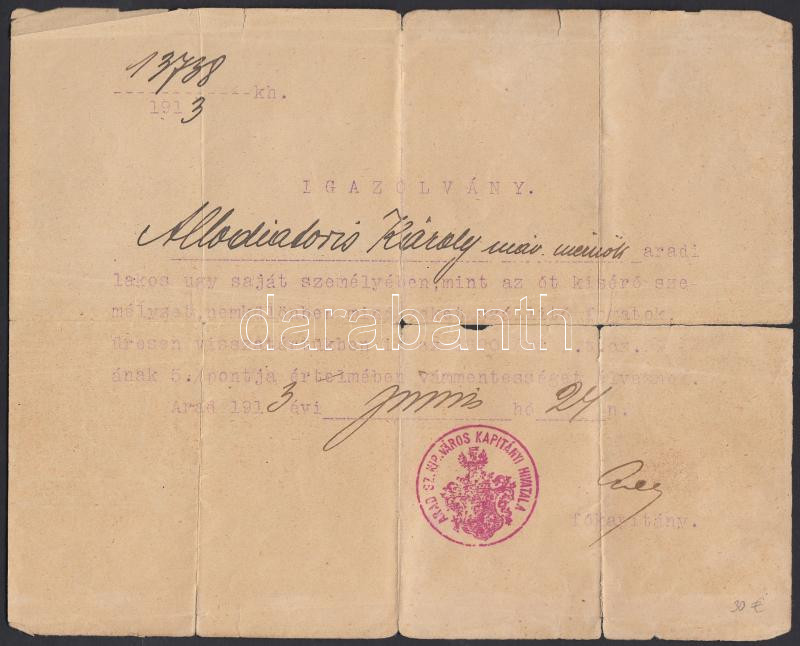 13738
kh.
1913
IGAZOLVÁNY.
Allodiatoris Károly máv. mérnök aradi
lakos ugy saját személyében, mint az őt kisérő sze-
mélyzet, fogatok,
üresen
ának 5. pontja értelmében vámmentességet élveznek.
Arad 1913 évi junius hó 24 n.
ARAD SZ. KIR. VÁROS KAPITÁNYI HIVATALA
főkapitány.
30 €
darabanth